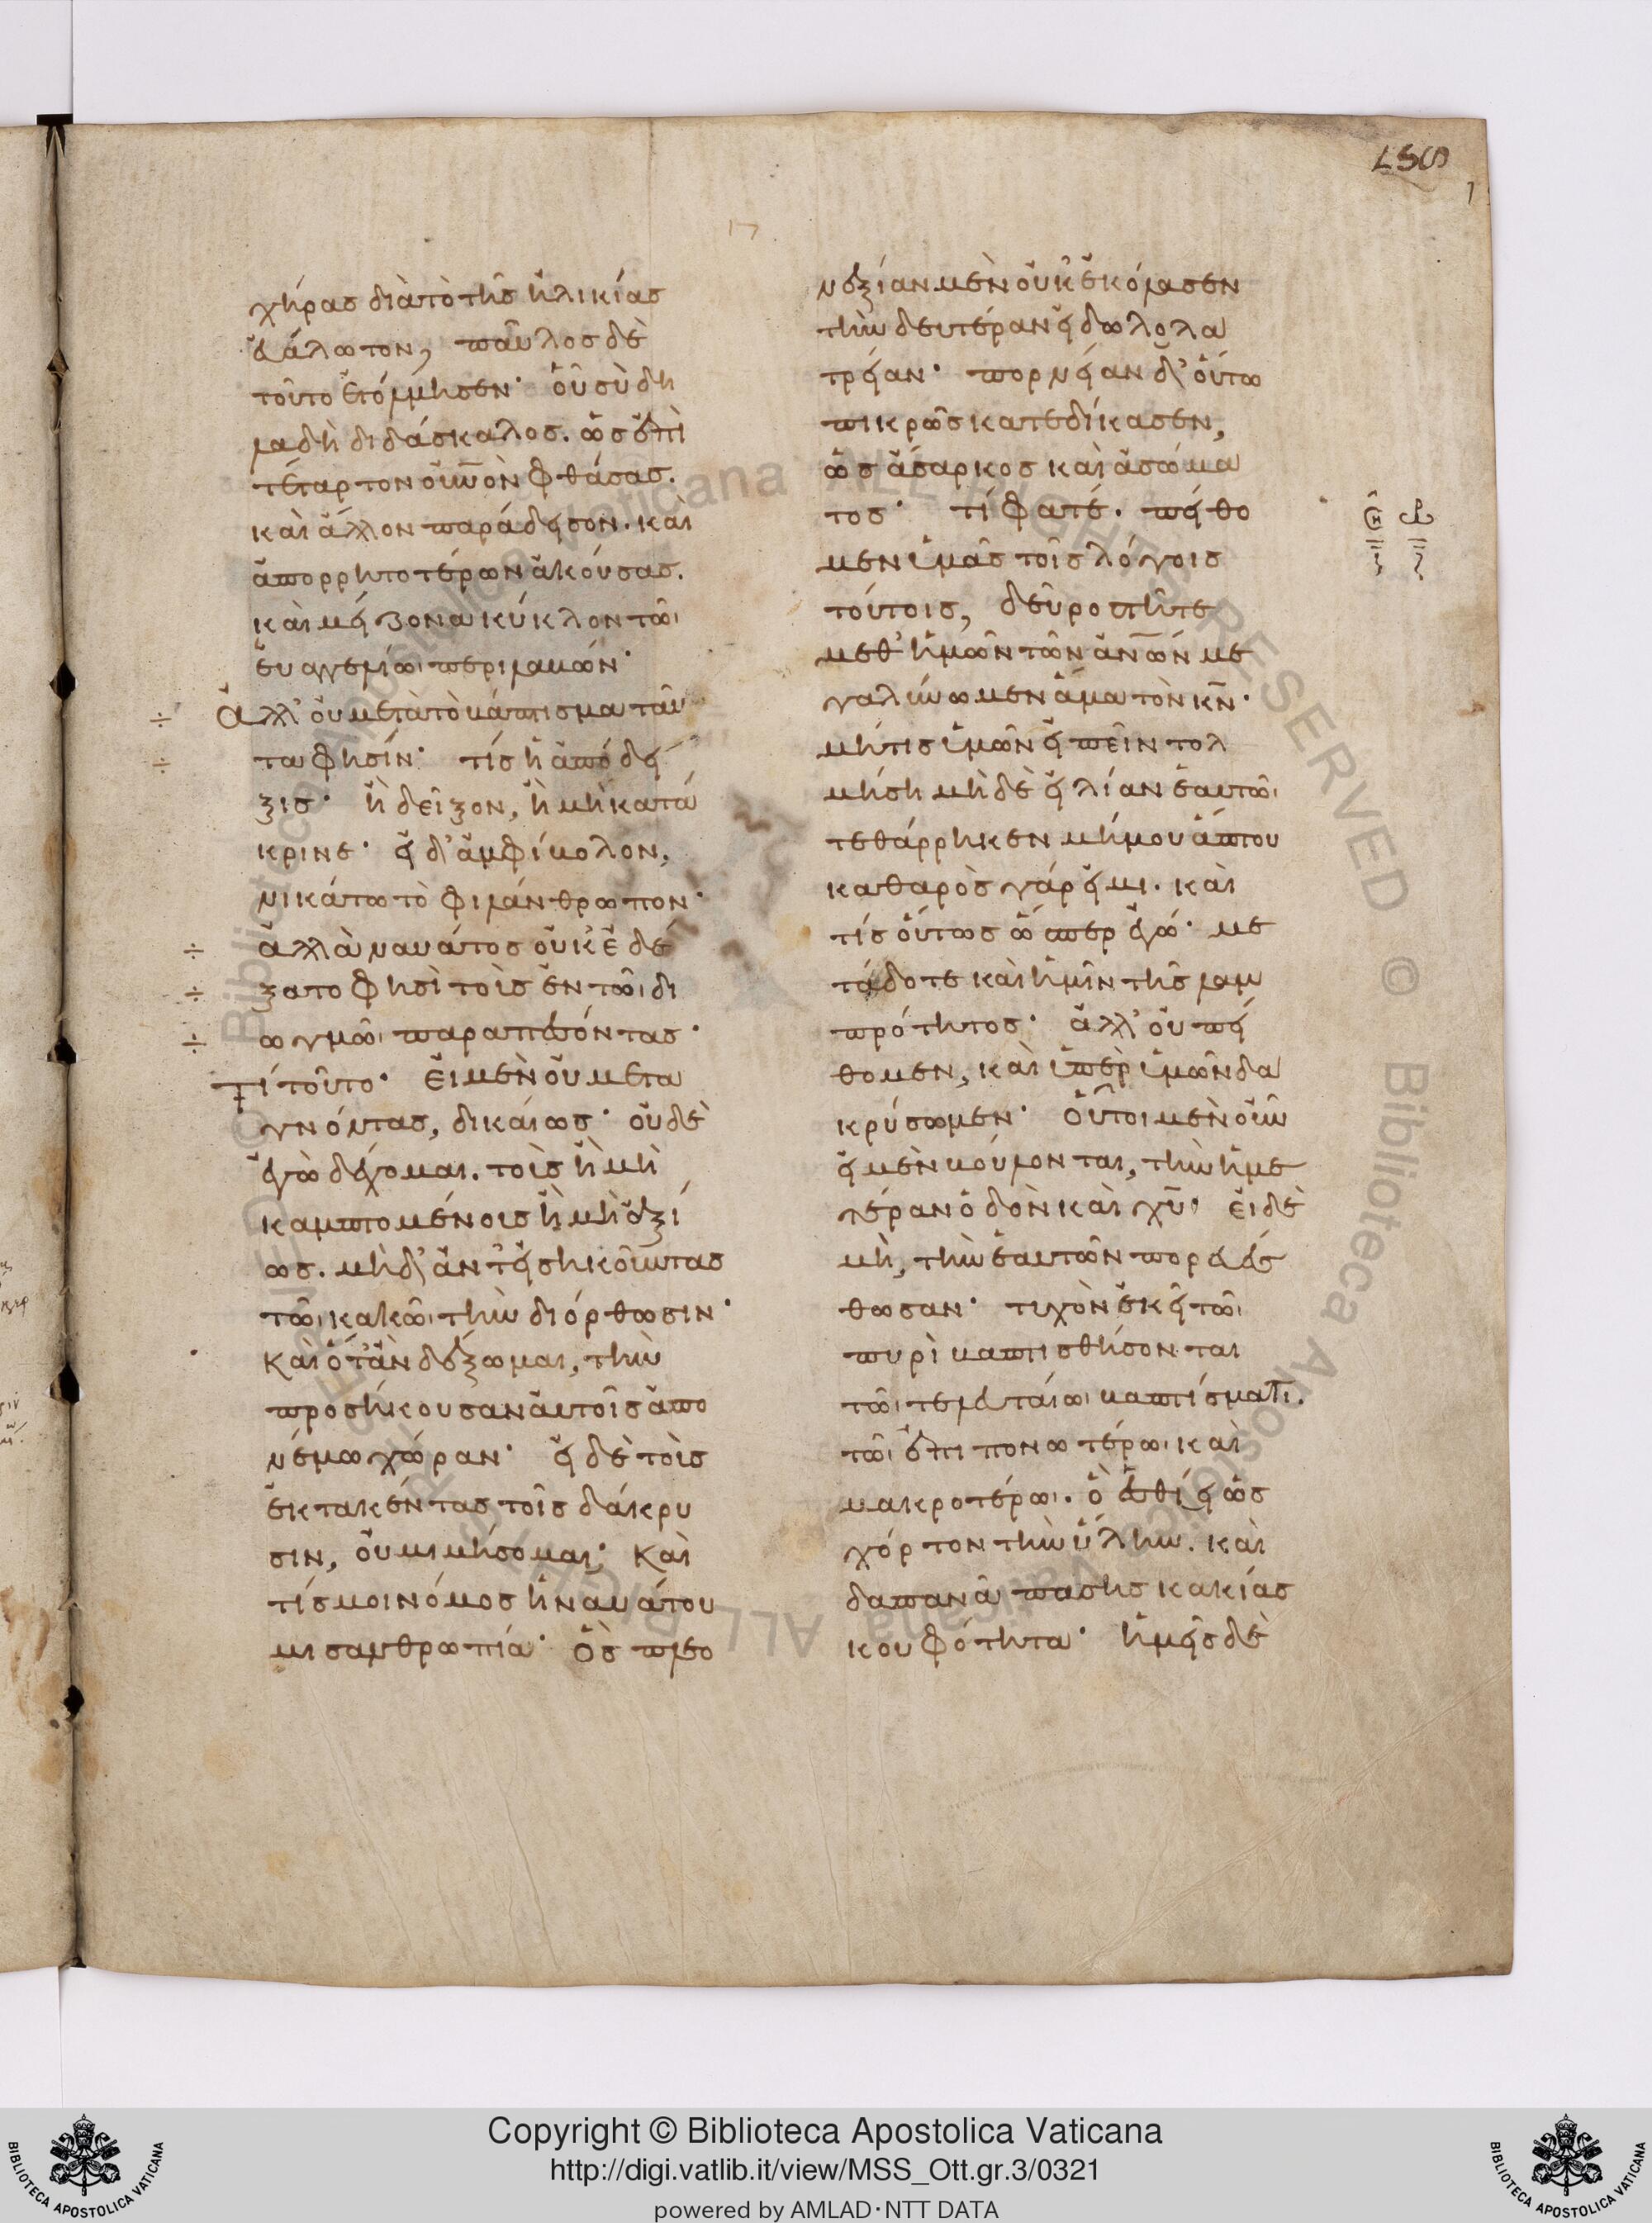 χήρας διὰ τὸ τῆς ἡλικίας
εὐάλωτον, παῦλος δὲ
τοῦτο ἐτόλμησεν· οὗ σὺ δη
λαδὴ διδάσκαλος. ὡς ἐπὶ
τέταρτον οὐνὸν φθάσας.
καὶ ἄλλον παράδεισον. καὶ
ἀπορρητοτέρων ἀκούσας.
καὶ μείζονα κύκλον τῶι
εὐαγγελίωι περιλαβών·
÷ Ἀλλ' οὐ μετὰ τὸ βάπτισμα ταῦ
÷ τα φησίν· τίς ἡ ἀπόδει
ξις· ἢ δεῖξον, ἢ μὴ κατά
κρινε· εἰ δ' ἀμφίβολον,
νικάτω τὸ φιλάνθρωπον·
÷ ἀλλὰ ναυάτος οὐκ ἐδέ
÷ ξατο φησὶ τοὺς ἐν τῶι δι
÷ ωγμῶι παραπεσόντας·
Τί τοῦτο· εἰ μὲν οὐ μετα
γνόντας, δικαίως· οὐδὲ
ἐγὼ δέχομαι. τοὺς ἢ μὴ
καμπτομένους ἢ μὴ ἀξί
ως. μὴδ' ἀντεισηκοῦντας
τῶι κακῶι τὴν διόρθωσιν·
καὶ ὅτ' ἂν δέξωμαι, τὴν
προσήκουσαν αὐτοῖς ἀπο
νέμω χώραν· εἰ δὲ τοὺς
ἐκτακέντας τοῖς δάκρυ
σιν, οὐ μιμήσομαι· καὶ
τίς μοι νόμος ἡ ναυάτου
μισανθρωπία· ὃς πλεο
νεξίαν μὲν οὐκ ἐκόλασεν
τὴν δευτέραν εἰδωλολα
τρείαν· πορνείαν δ' οὕτω
πικρῶς κατεδίκασεν,
ὡς ἄσαρκος καὶ ἀσώμα
τος· τί φατέ. πείθο
μεν ὑμᾶς τοῖς λόγοις
τούτοις, δεῦρο στῆτε
μεθ' ἡμῶν τῶν ἀνων με
γαλύνωμεν ἅμα τὸν κν·
μήτις ὑμῶν εἰπεῖν τολ
μήση μὴδὲ εἰ λίαν ἑαυτῶι
τεθάρρηκεν μή μου ἅπτου
καθαρὸς γάρ εἰμι. καὶ
τίς οὕτως ὥσπερ ἐγώ· με
τάδοτε καὶ ἡμῖν τῆς λαμ
πρότητος· ἀλλ' οὐ πεί
θομεν, καὶ ὑπὲρ ὑμῶν δα
κρύσωμεν· Οὗτοι μὲν οὖν
εἰ μὲν βούλονται, τὴν ἡμε
τέραν ὁδὸν καὶ χυ· εἰ δὲ
μὴ, τὴν ἑαυτῶν πορευέσ
θωσαν· τυχὸν ἐκεῖ τῶι
πυρὶ βαπτισθήσονται
τῶι τελευταίωι βαπτίσματι.
τῶι ἐπιπονωτέρωι καὶ
μακροτέρωι. ὃ ἐσθίει ὡς
χόρτον τὴν ὕλην. καὶ
δαπανᾶ πασης κακίας
κουφότητα· ἡμεῖς δὲ
Copyright © Biblioteca Apostolica Vaticana
http://digi.vatlib.it/view/MSS_Ott.gr.3/0321
powered by AMLAD·NTT DATA
BIBLIOTECA APOSTOLICA VATICANA
BIBLIOTECA APOSTOLICA VATICANA